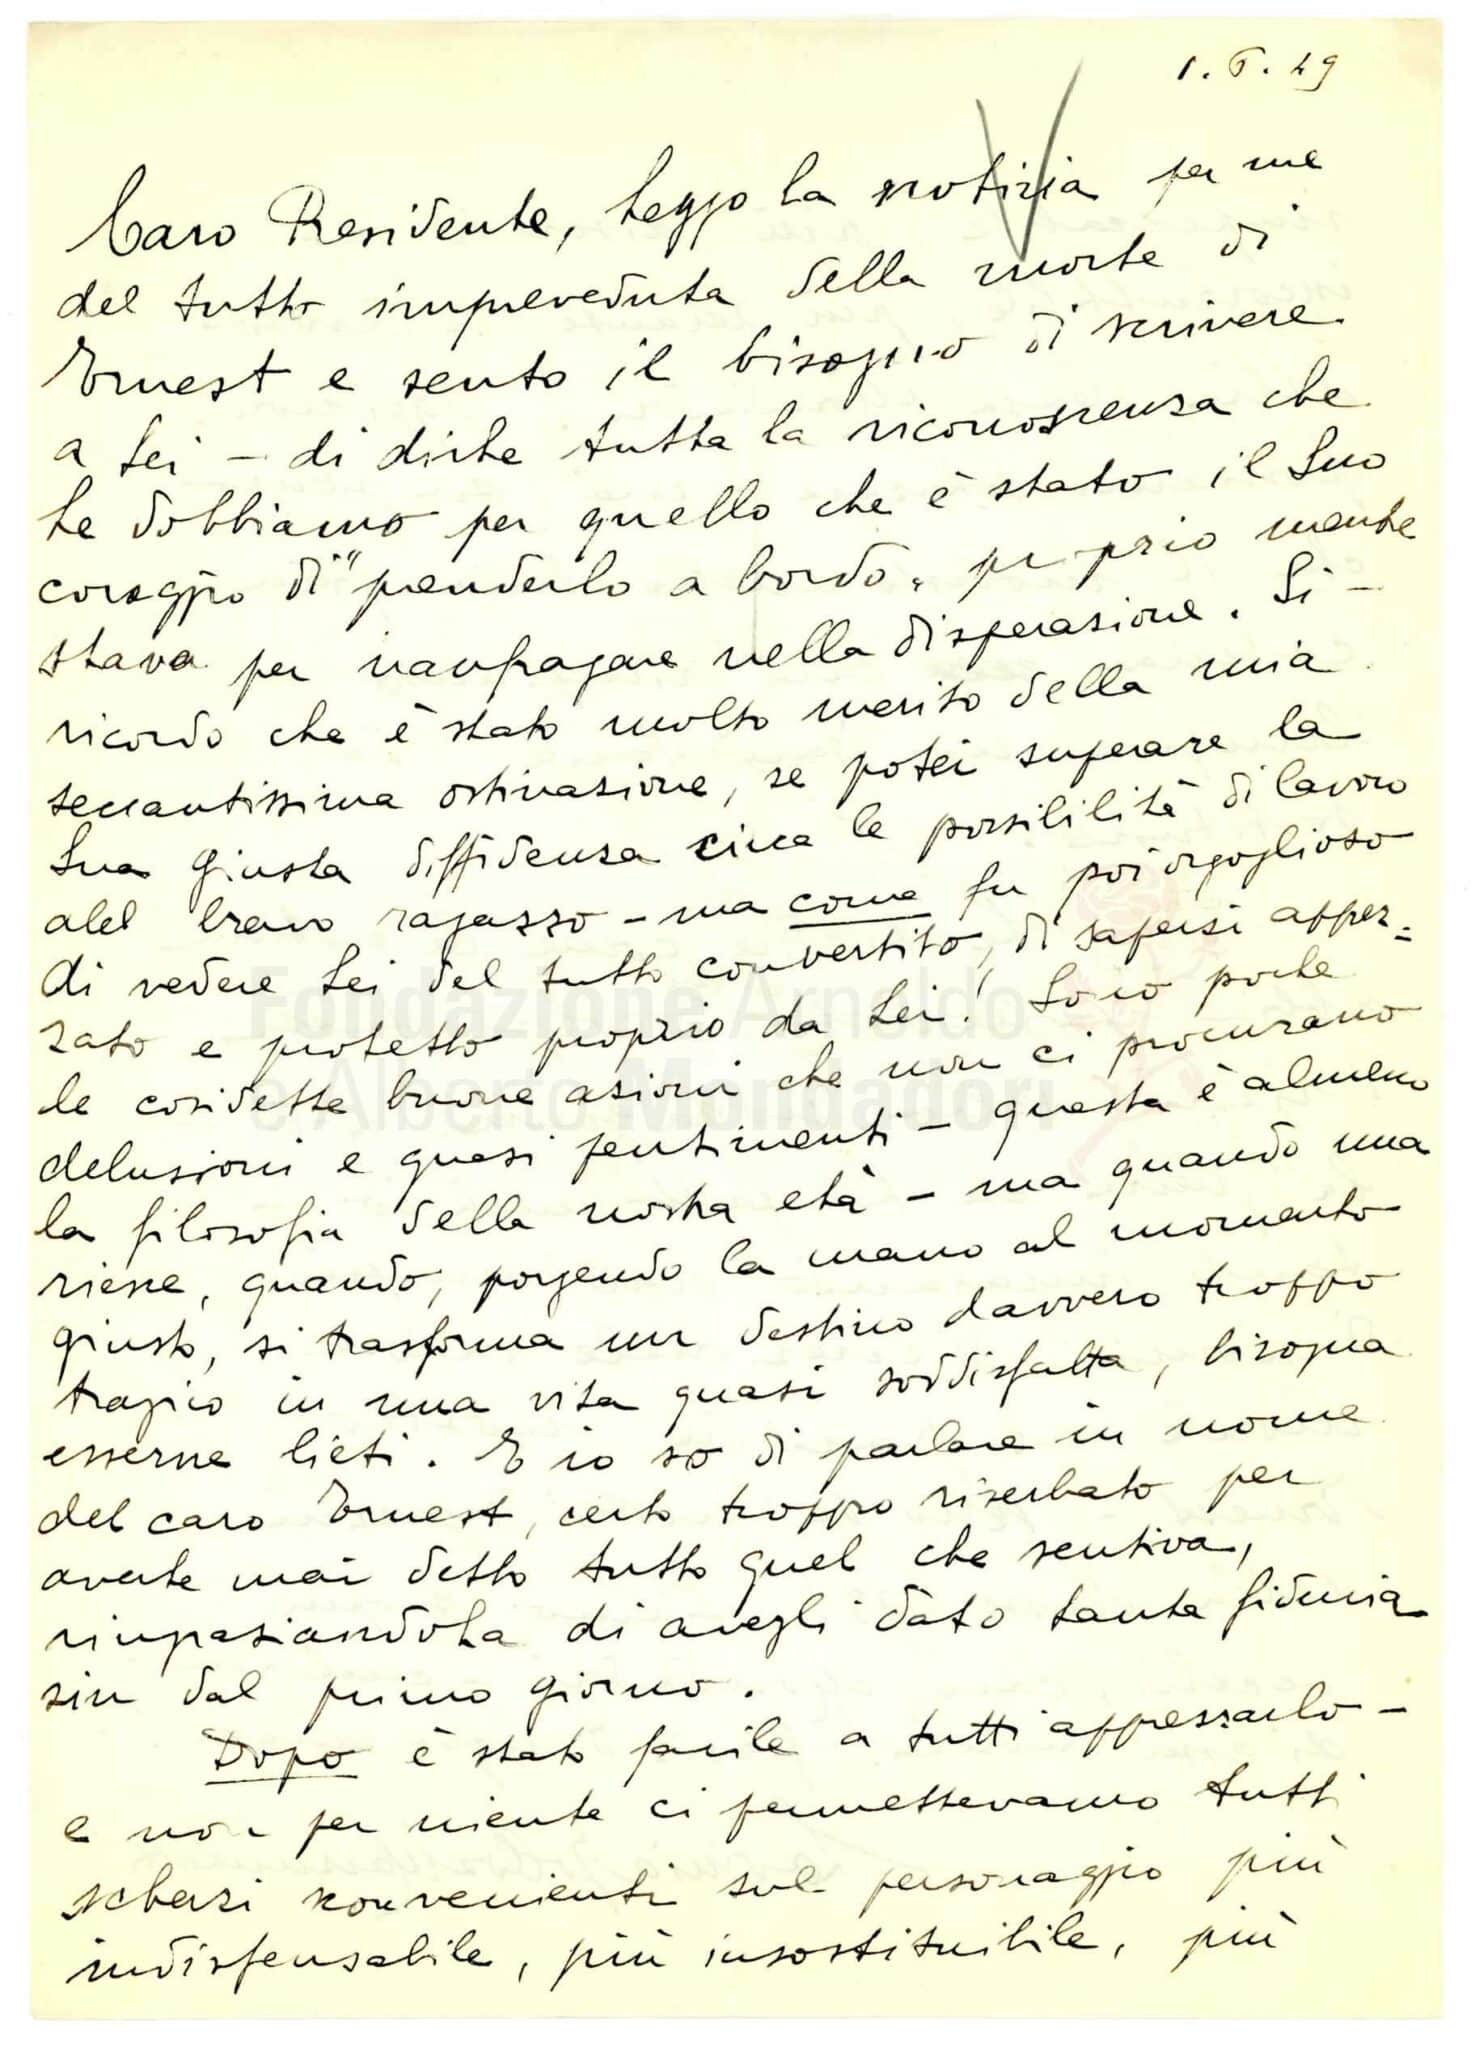 1. 6. 49
Caro Presidente, leggo la notizia per me
del tutto impreveduta della morte di
Ernest e sento il bisogno di scrivere
a Lei – di dirLe tutta la riconoscenza che
Le dobbiamo per quello che è stato il Suo
coraggio di "prenderlo a bordo" proprio mentre
stava per naufragare nella disperazione. Si –
ricordo che è stato molto merito della mia
seccantissima ostinazione, se potei superare la
Sua giusta diffidenza circa le possibilità di lavoro
del bravo ragazzo – ma come fu poi orgoglioso
di vedere Lei del tutto convertito, di sapersi apprez=
zato e protetto proprio da Lei! Sono poche
le cosidette buone azioni che non ci procurano
delusioni e quasi pentimenti – questa è almeno
la filosofia della nostra età – ma quando una
riesce, quando, porgendo la mano al momento
giusto, si trasforma un destino davvero troppo
tragico in una vita quasi soddisfatta, bisogna
esserne lieti. E io so di parlare in nome
del caro Ernest, certo troppo riserbato per
averLe mai detto tutto quel che sentiva,
ringraziandoLa di avergli dato tanta fiducia
sin dal primo giorno.
Dopo è stato facile a tutti apprezzarlo –
e non per niente ci permettevamo tutti
scherzi sconvenienti sul personaggio più
indispensabile, più insostituibile, più
Fondazione Arnoldo
e Alberto Mondadori